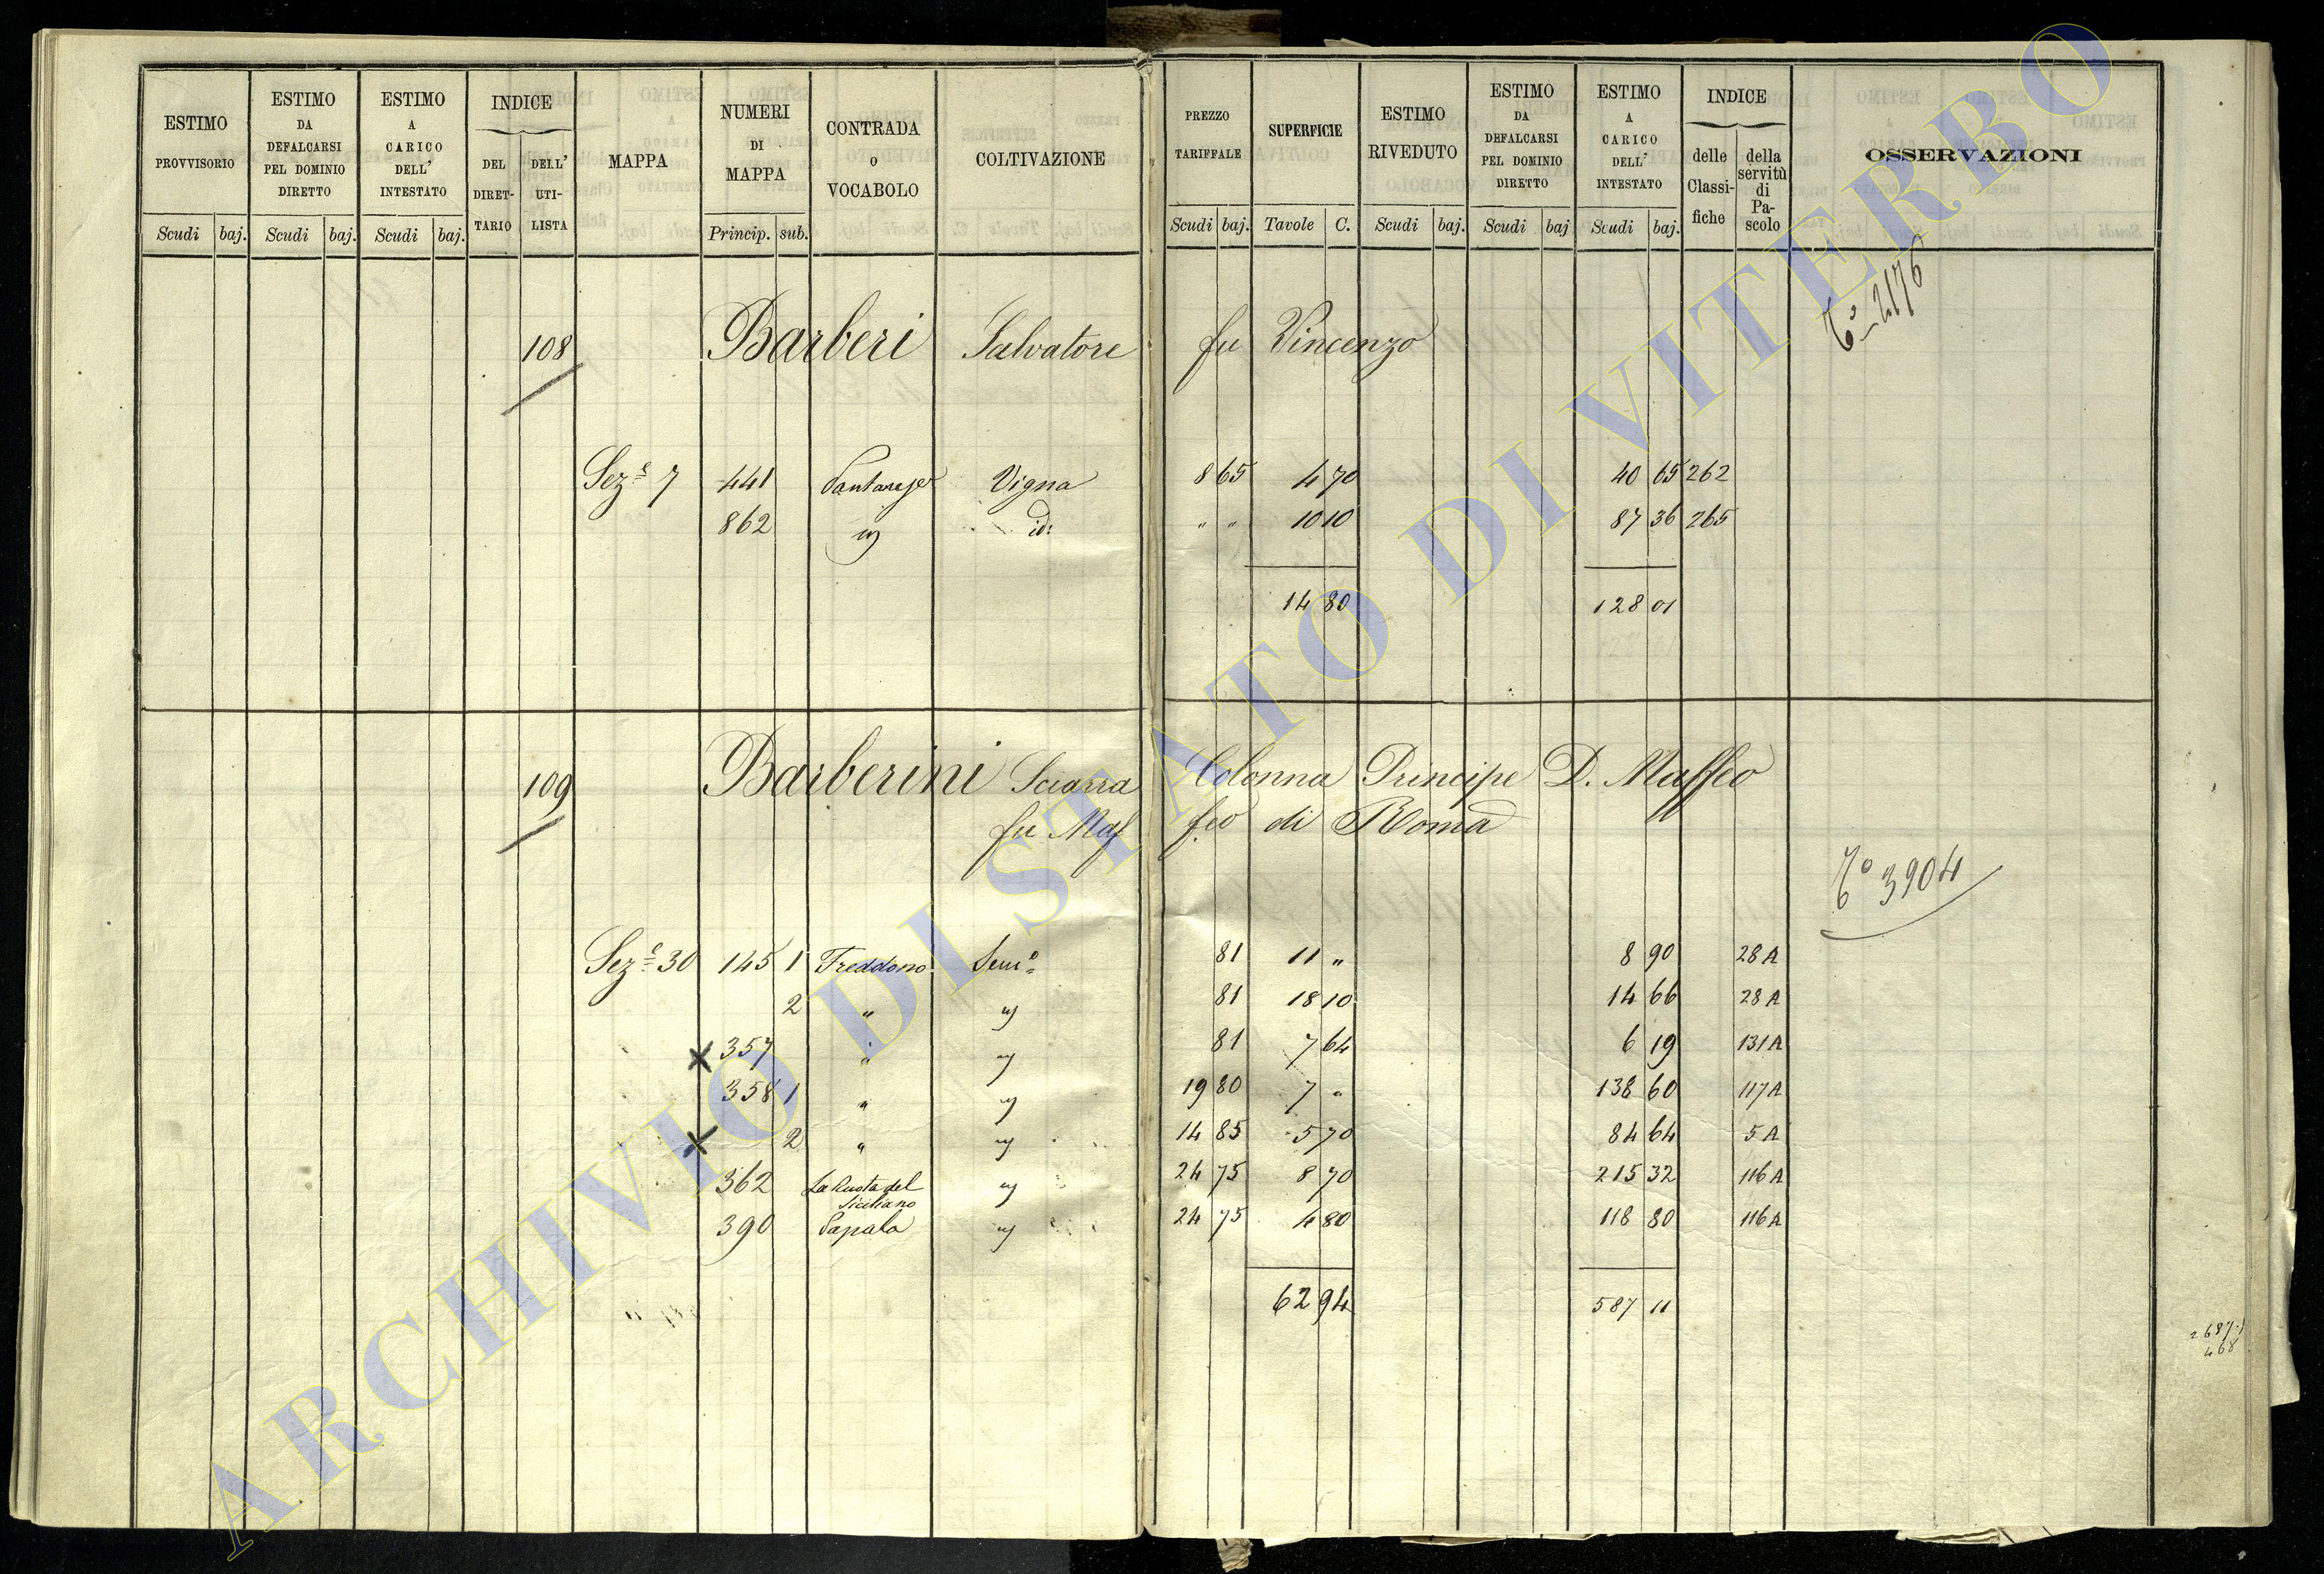 ESTIMO PROVVISORIO
ESTIMO DA DEFALCARSI PEL DOMINIO DIRETTO
ESTIMO A CARICO DELL' INTESTATO
INDICE
DEL DIRET-TARIO
DELL' UTI-LISTA
MAPPA
NUMERI DI MAPPA
CONTRADA O VOCABOLO
COLTIVAZIONE
Scudi baj. Scudi baj. Scudi baj. Princip. sub.
PREZZO TARIFFALE
SUPERFICIE
ESTIMO RIVEDUTO
ESTIMO DA DEFALCARSI PEL DOMINIO DIRETTO
ESTIMO A CARICO DELL' INTESTATO
INDICE
delle Classi-fiche
della servitù di Pa-scolo
OSSERVAZIONI
Scudi baj. Tavole C. Scudi baj. Scudi baj Scudi baj.
108 Barberi Salvatore fu Vincenzo
2176
Sez.e 7 441 Vigna 8 65 4 70 40 65 262
862 id: " " 10 10 87 36 265
14 80 128 01
109 Barberini Sciarra Colonna Principe D. Maffeo
fu Maf feo di Roma
3904
Sez.e 30 145 1 Freddono Sem.o 81 11 " 8 90 28 A
2 " " 81 18 10 14 66 28 A
X 357 " " 81 7 64 6 19 131 A
358 1 " " 19 80 7 " 138 60 117 A
X 2 " " 14 85 5 70 84 64 5 A
362 La Ruota del Siciliano " 24 75 8 70 215 32 116 A
390 Papala " 24 75 4 80 118 80 116 A
62 94 587 11
468
ARCHIVIO DI STATO DI VITERBO